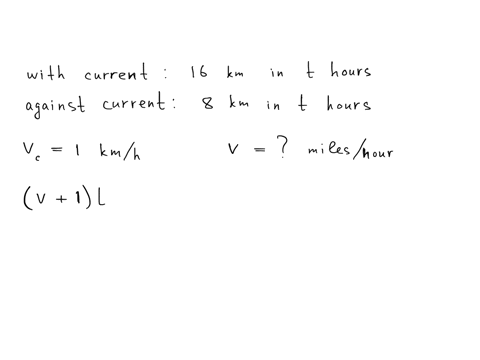 with current: 16 km in t hours
against current: 8 km in t hours
Vc = 1 km/h V = ? miles/hour
(V + 1)